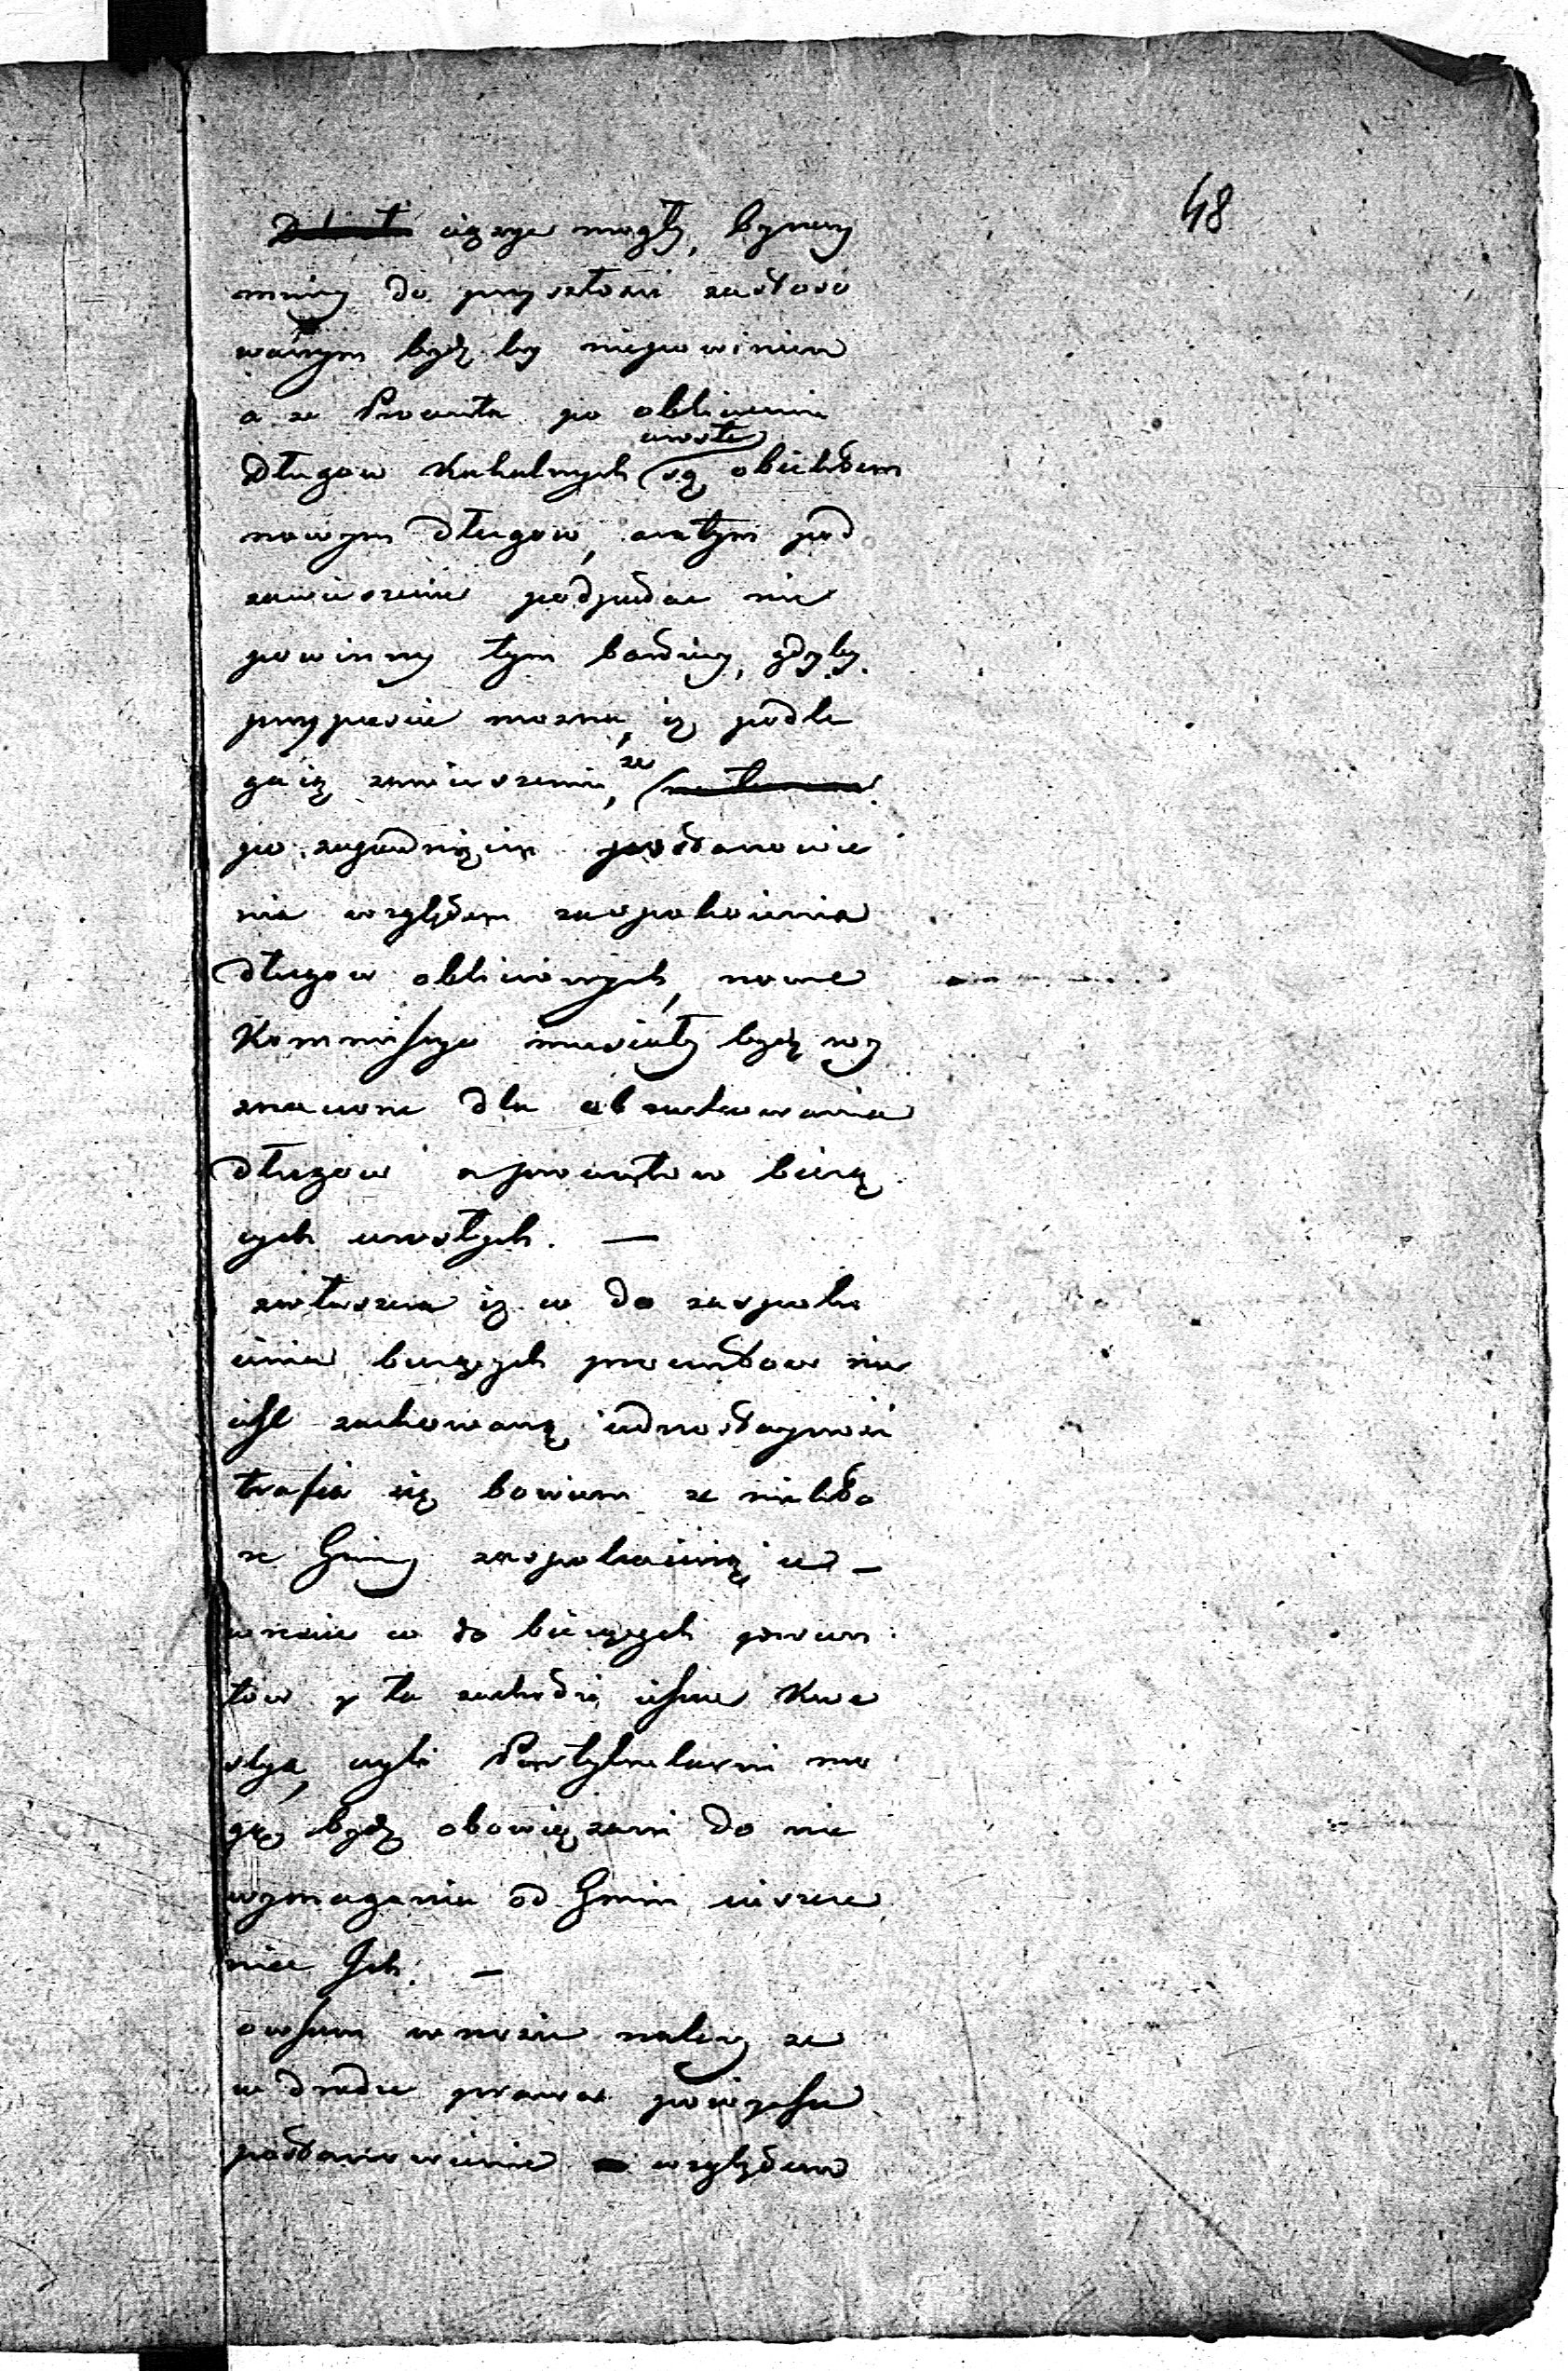 48
ciężyć mogły, bynay
mniey do przyszłosci zastoso
wanym bydź by niepowinien
a że Procenta po obliczeniu
urosłe
Długow Kahalnych są obiektem
nowym długow, a zatym pod
zawieszenie podpadac nie
powinny tym bardziey, gdyby
przypuscic można, iż podle
gaią zawieszeniu, że
po zapadnięciu postanowie
nia względem zaspokoienia
długow obliczonych, nowe
Kommissye musiały bydź wy
znaczone dla obrachowania
długow z procentow bieżą
cych urosłych. —
zwłaszcza iż w do zaspoko
ienia bieżących procentow nie
iest zachowaną iednostayność
trafia się bowiem że niektó
re Gminy zaspokoiaią
wnie co do bieżących procen
tow y ta zachodzi ieszcze Kwe
stya, czyli Partykularni mo
gą bydź obowiązani do nie
wymagania od Gmin uiszcze
nia Ich. —
owszem wnosić należy że
w drodze prawa powyższe
postanowienie względem